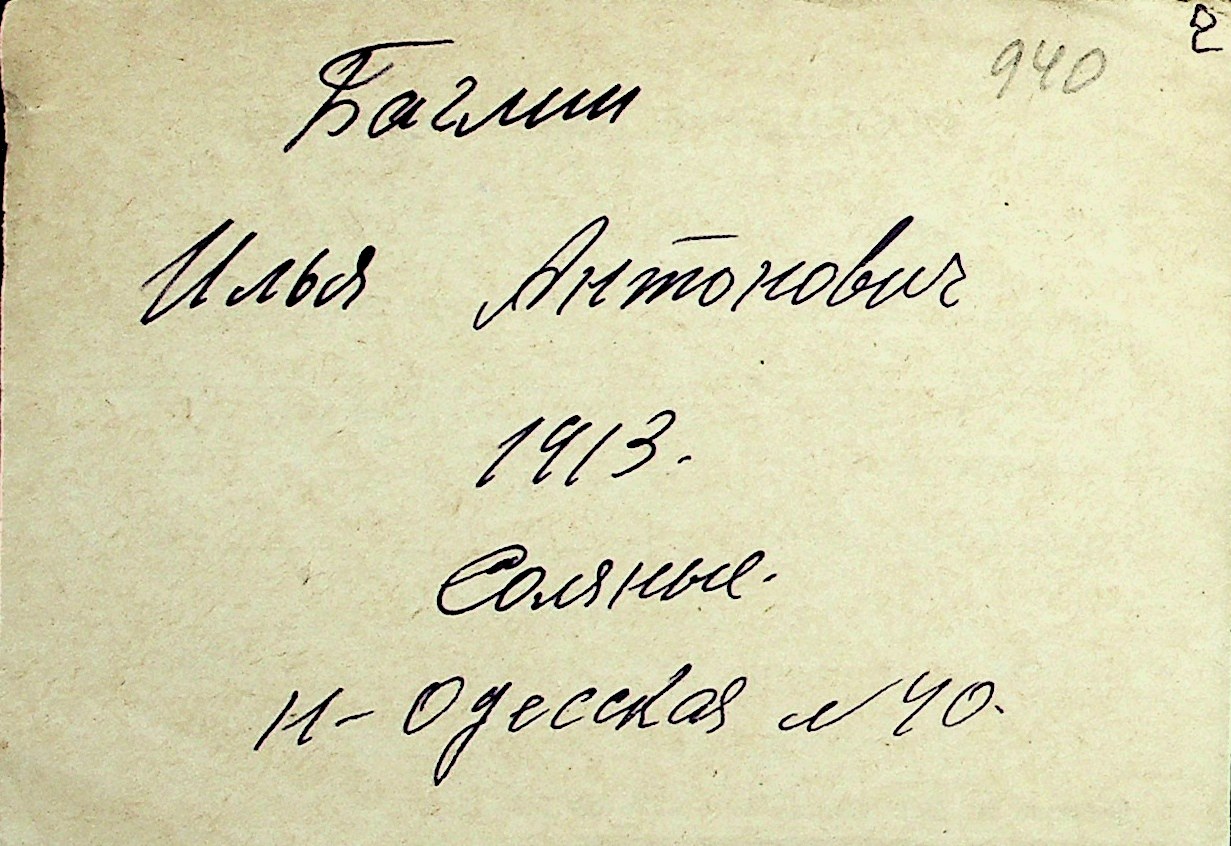 940
Баглии
Илья Антонович
1913.
Соляные.
Н-Одесская N 40.